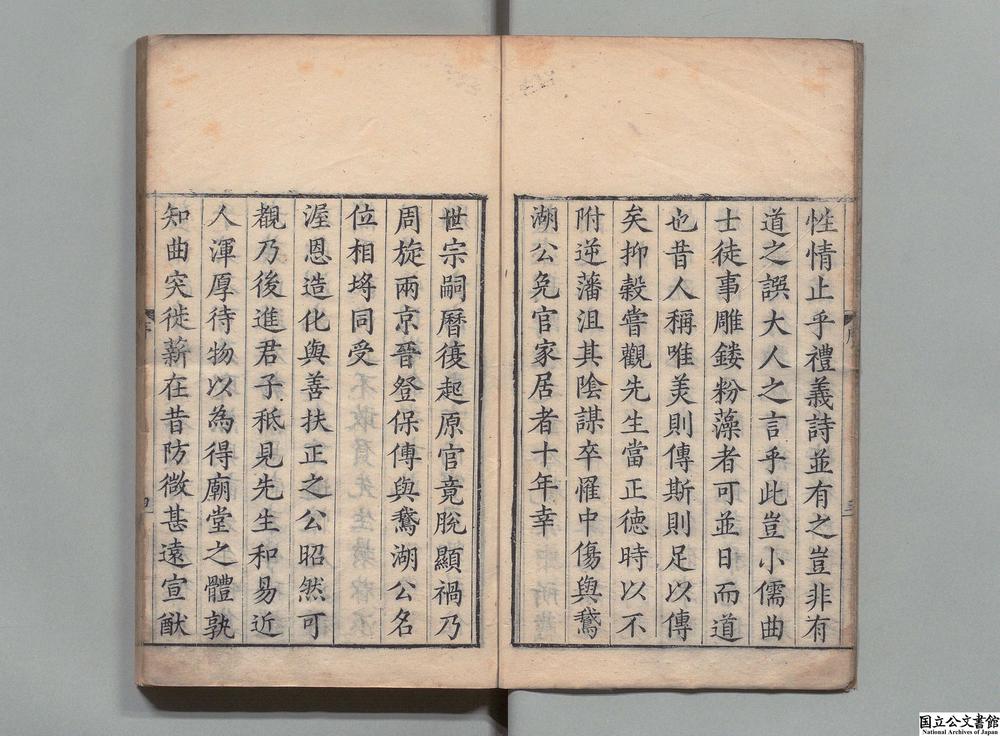 性情止乎禮義詩並有之豈非有
道之誤大人之言乎此豈小儒曲
士徒事雕鏤粉藻者可並日而道
也昔人稱唯美則傳斯則足以傳
矣抑榖嘗觀先生當正德時以不
附逆藩沮其陰謀卒罹中傷與鵞
湖公免官家居者十年幸
世宗嗣曆復起原官竟脫顯禍乃
周旋兩京晉登保傅與鵞湖公名
位相埓同受
渥恩造化與善扶正之公昭然可
覩乃後進君子秪見先生和易近
人渾厚待物以為得廟堂之體孰
知曲突徙薪在昔防微甚遠宣猷
国立公文書館
National Archives of Japan